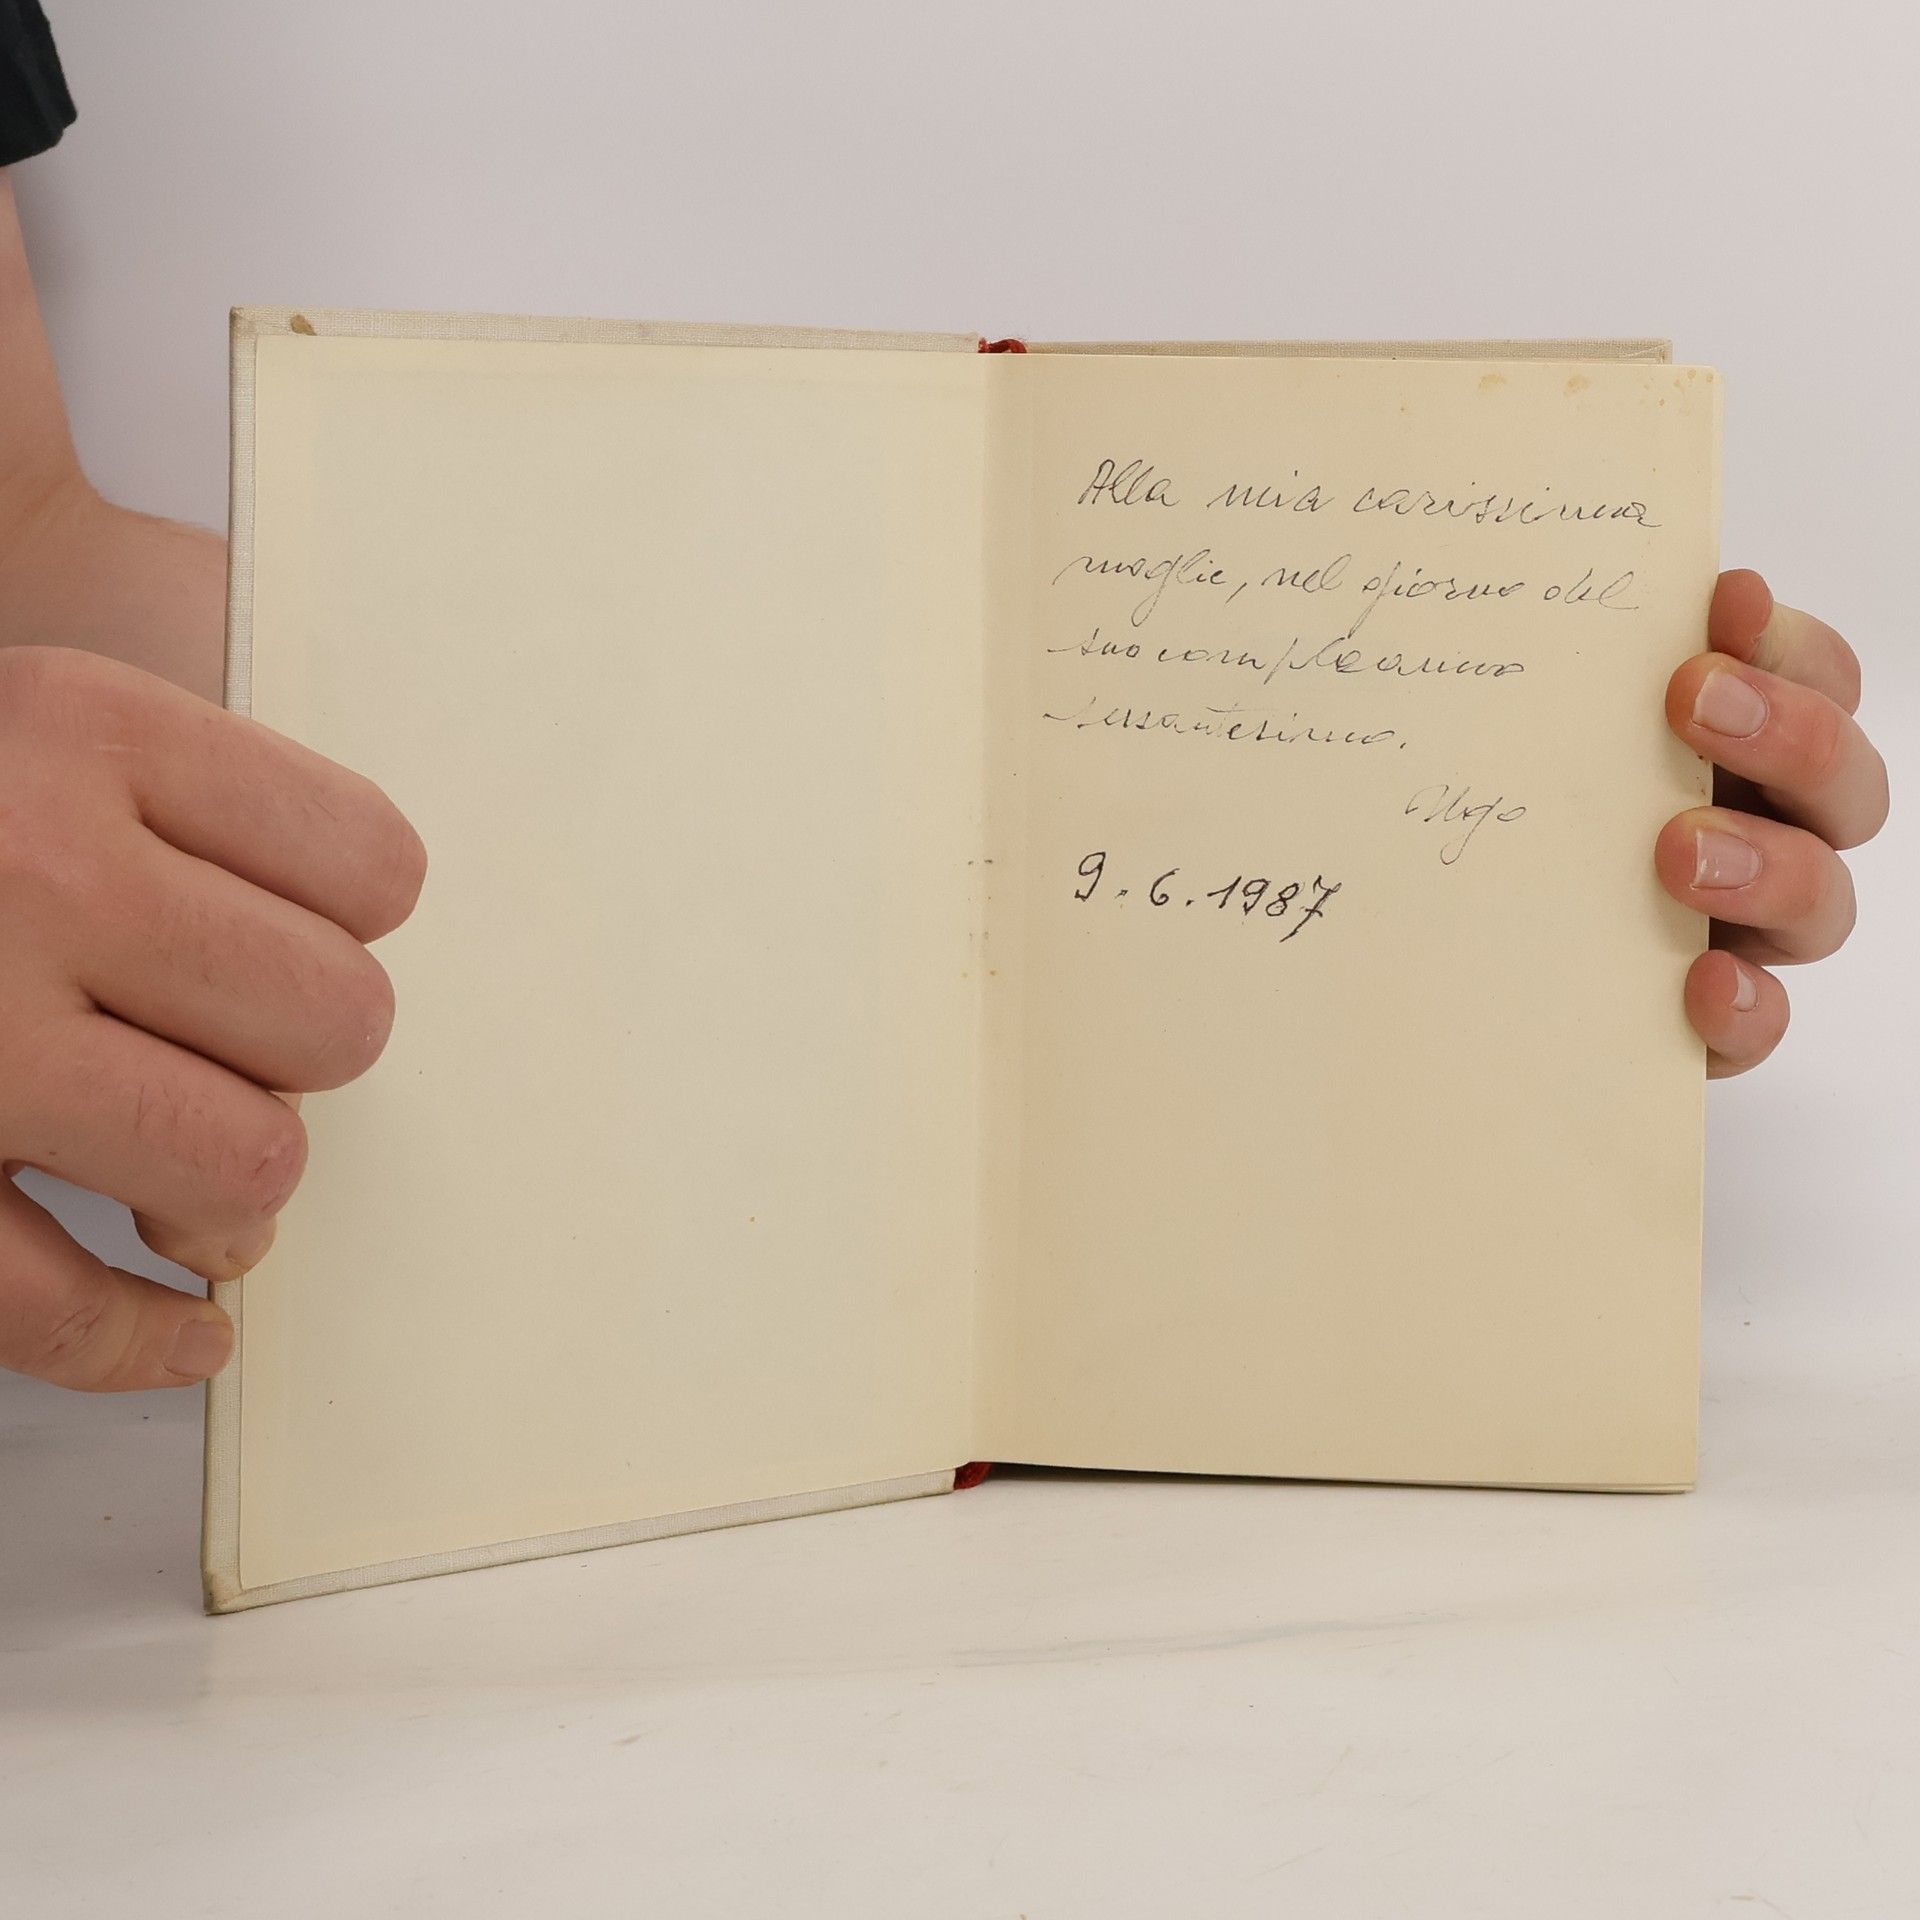 Alla mia carissima
moglie, nel giorno del
suo compleanno
sessantesimo.
Ugo
9.6.1987